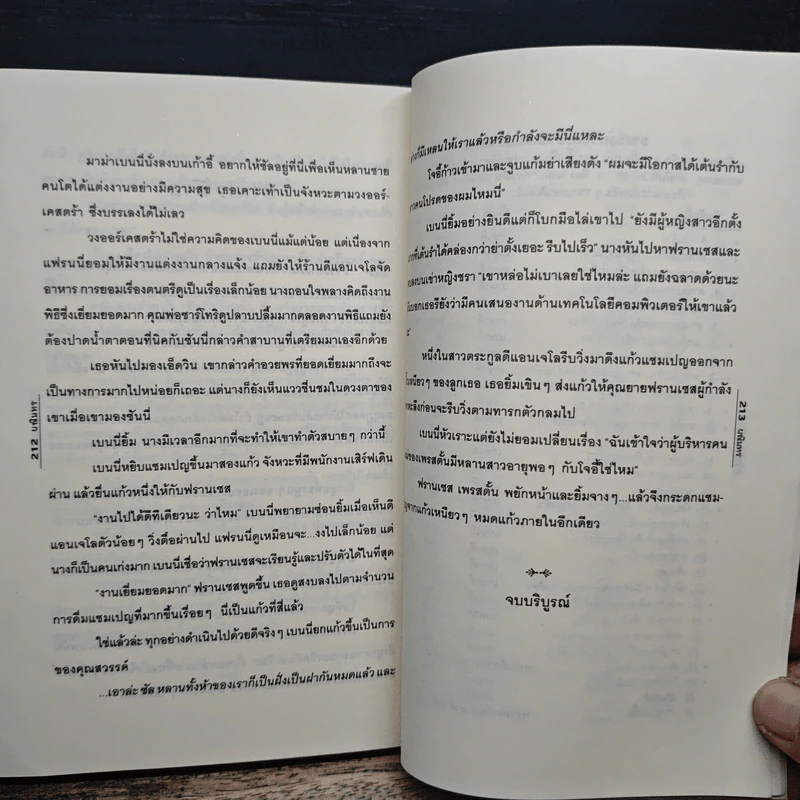 มาม่าเบนนี่นั่งลงบนเก้าอี้ อยากให้ซัลอยู่ที่นี่เพื่อเห็นหลานชาย
คนโตได้แต่งงานอย่างมีความสุข เธอเคาะเท้าเป็นจังหวะตามวงออร์-
เคสตร้า ซึ่งบรรเลงได้ไม่เลว
วงออร์เคสตร้าไม่ใช่ความคิดของเบนนี่แม้แต่น้อย แต่เนื่องจาก
แฟรนนี่ยอมให้มีงานแต่งงานกลางแจ้ง แถมยังให้ร้านดีแอนเจโลจัด
อาหาร การยอมเรื่องดนตรีดูเป็นเรื่องเล็กน้อย นางถอนใจพลางคิดถึงงาน
พิธีซึ่งเยี่ยมยอดมาก คุณพ่อซาร์โทริดูปลาบปลื้มมากตลอดงานพิธีแถมยัง
ต้องปาดน้ำตาตอนที่นิคกับซันนี่กล่าวคำสาบานที่เตรียมมาเองอีกด้วย
เธอหันไปมองเอ็ดวิน เขากล่าวคำอวยพรที่ยอดเยี่ยมมากถึงจะ
เป็นทางการมากไปหน่อยก็เถอะ แต่นางก็ยังเห็นแววชื่นชมในดวงตาของ
เขาเมื่อเขามองซันนี่
เบนนี่ยิ้ม นางมีเวลาอีกมากที่จะทำให้เขาทำตัวสบายๆ กว่านี้
เบนนี่หยิบแชมเปญขึ้นมาสองแก้ว จังหวะที่มีพนักงานเสิร์ฟเดิน
ผ่าน แล้วยื่นแก้วหนึ่งให้กับฟรานเซส
"งานไปได้ดีทีเดียวนะ ว่าไหม" เบนนี่พยายามซ่อนยิ้มเมื่อเห็นดี
แอนเจโลตัวน้อยๆ วิ่งตื๋อผ่านไป แฟรนนี่ดูเหมือนจะ...งงไปเล็กน้อย แต่
นางก็เป็นคนเก่งมาก เบนนี่เชื่อว่าฟรานเซสจะเรียนรู้และปรับตัวได้ในที่สุด
"งานเยี่ยมยอดมาก" ฟรานเซสพูดขึ้น เธอดูสงบลงไปตามจำนวน
การดื่มแชมเปญที่มากขึ้นเรื่อยๆ นี่เป็นแก้วที่สี่แล้ว
ใช่แล้วล่ะ ทุกอย่างดำเนินไปด้วยดีจริงๆ เบนนี่ยกแก้วขึ้นเป็นการ
ของคุณสวรรค์
...เอาล่ะ ซัล หลานทั้งห้าของเราก็เป็นฝั่งเป็นฝากันหมดแล้ว และ
212 บลินทร
ก็มีเหลนให้เราแล้วหรือกำลังจะมีนี่แหละ
โจอี้ก้าวเข้ามาและจูบแก้มย่าเสียงดัง "ผมจะมีโอกาสได้เต้นรำกับ
คนโปรดของผมไหมนี่"
เบนนี่ยิ้มอย่างยินดีแต่ก็โบกมือไล่เขาไป "ยังมีผู้หญิงสาวอีกตั้ง
ที่เต้นรำได้คล่องกว่าย่าตั้งเยอะ รีบไปเร็ว" นางหันไปหาฟรานเซสและ
ลงบนเข่าหญิงชรา "เขาหล่อไม่เบาเลยใช่ไหมล่ะ แถมยังฉลาดด้วยนะ
บอกเธอรึยังว่ามีคนเสนองานด้านเทคโนโลยีคอมพิวเตอร์ให้เขาแล้ว
หนึ่งในสาวตระกูลดีแอนเจโลรีบวิ่งมาดึงแก้วแชมเปญออกจาก
เหนียวๆ ของลูกเธอ เธอยิ้มเขินๆ ส่งแก้วให้คุณยายฟรานเซสผู้กำลัง
ตะลึงก่อนจะรีบวิ่งตามทารกตัวกลมไป
เบนนี่หัวเราะแต่ยังไม่ยอมเปลี่ยนเรื่อง "ฉันเข้าใจว่าผู้บริหารคน
ของเพรสตั้นมีหลานสาวอายุพอๆ กับโจอี้ใช่ไหม"
ฟรานเซส เพรสตั้น พยักหน้าและยิ้มจางๆ...แล้วจึงกระดกแชม-
จากแก้วเหนียวๆ หมดแก้วภายในอีกเดียว
จบบริบูรณ์
213 บลินทร